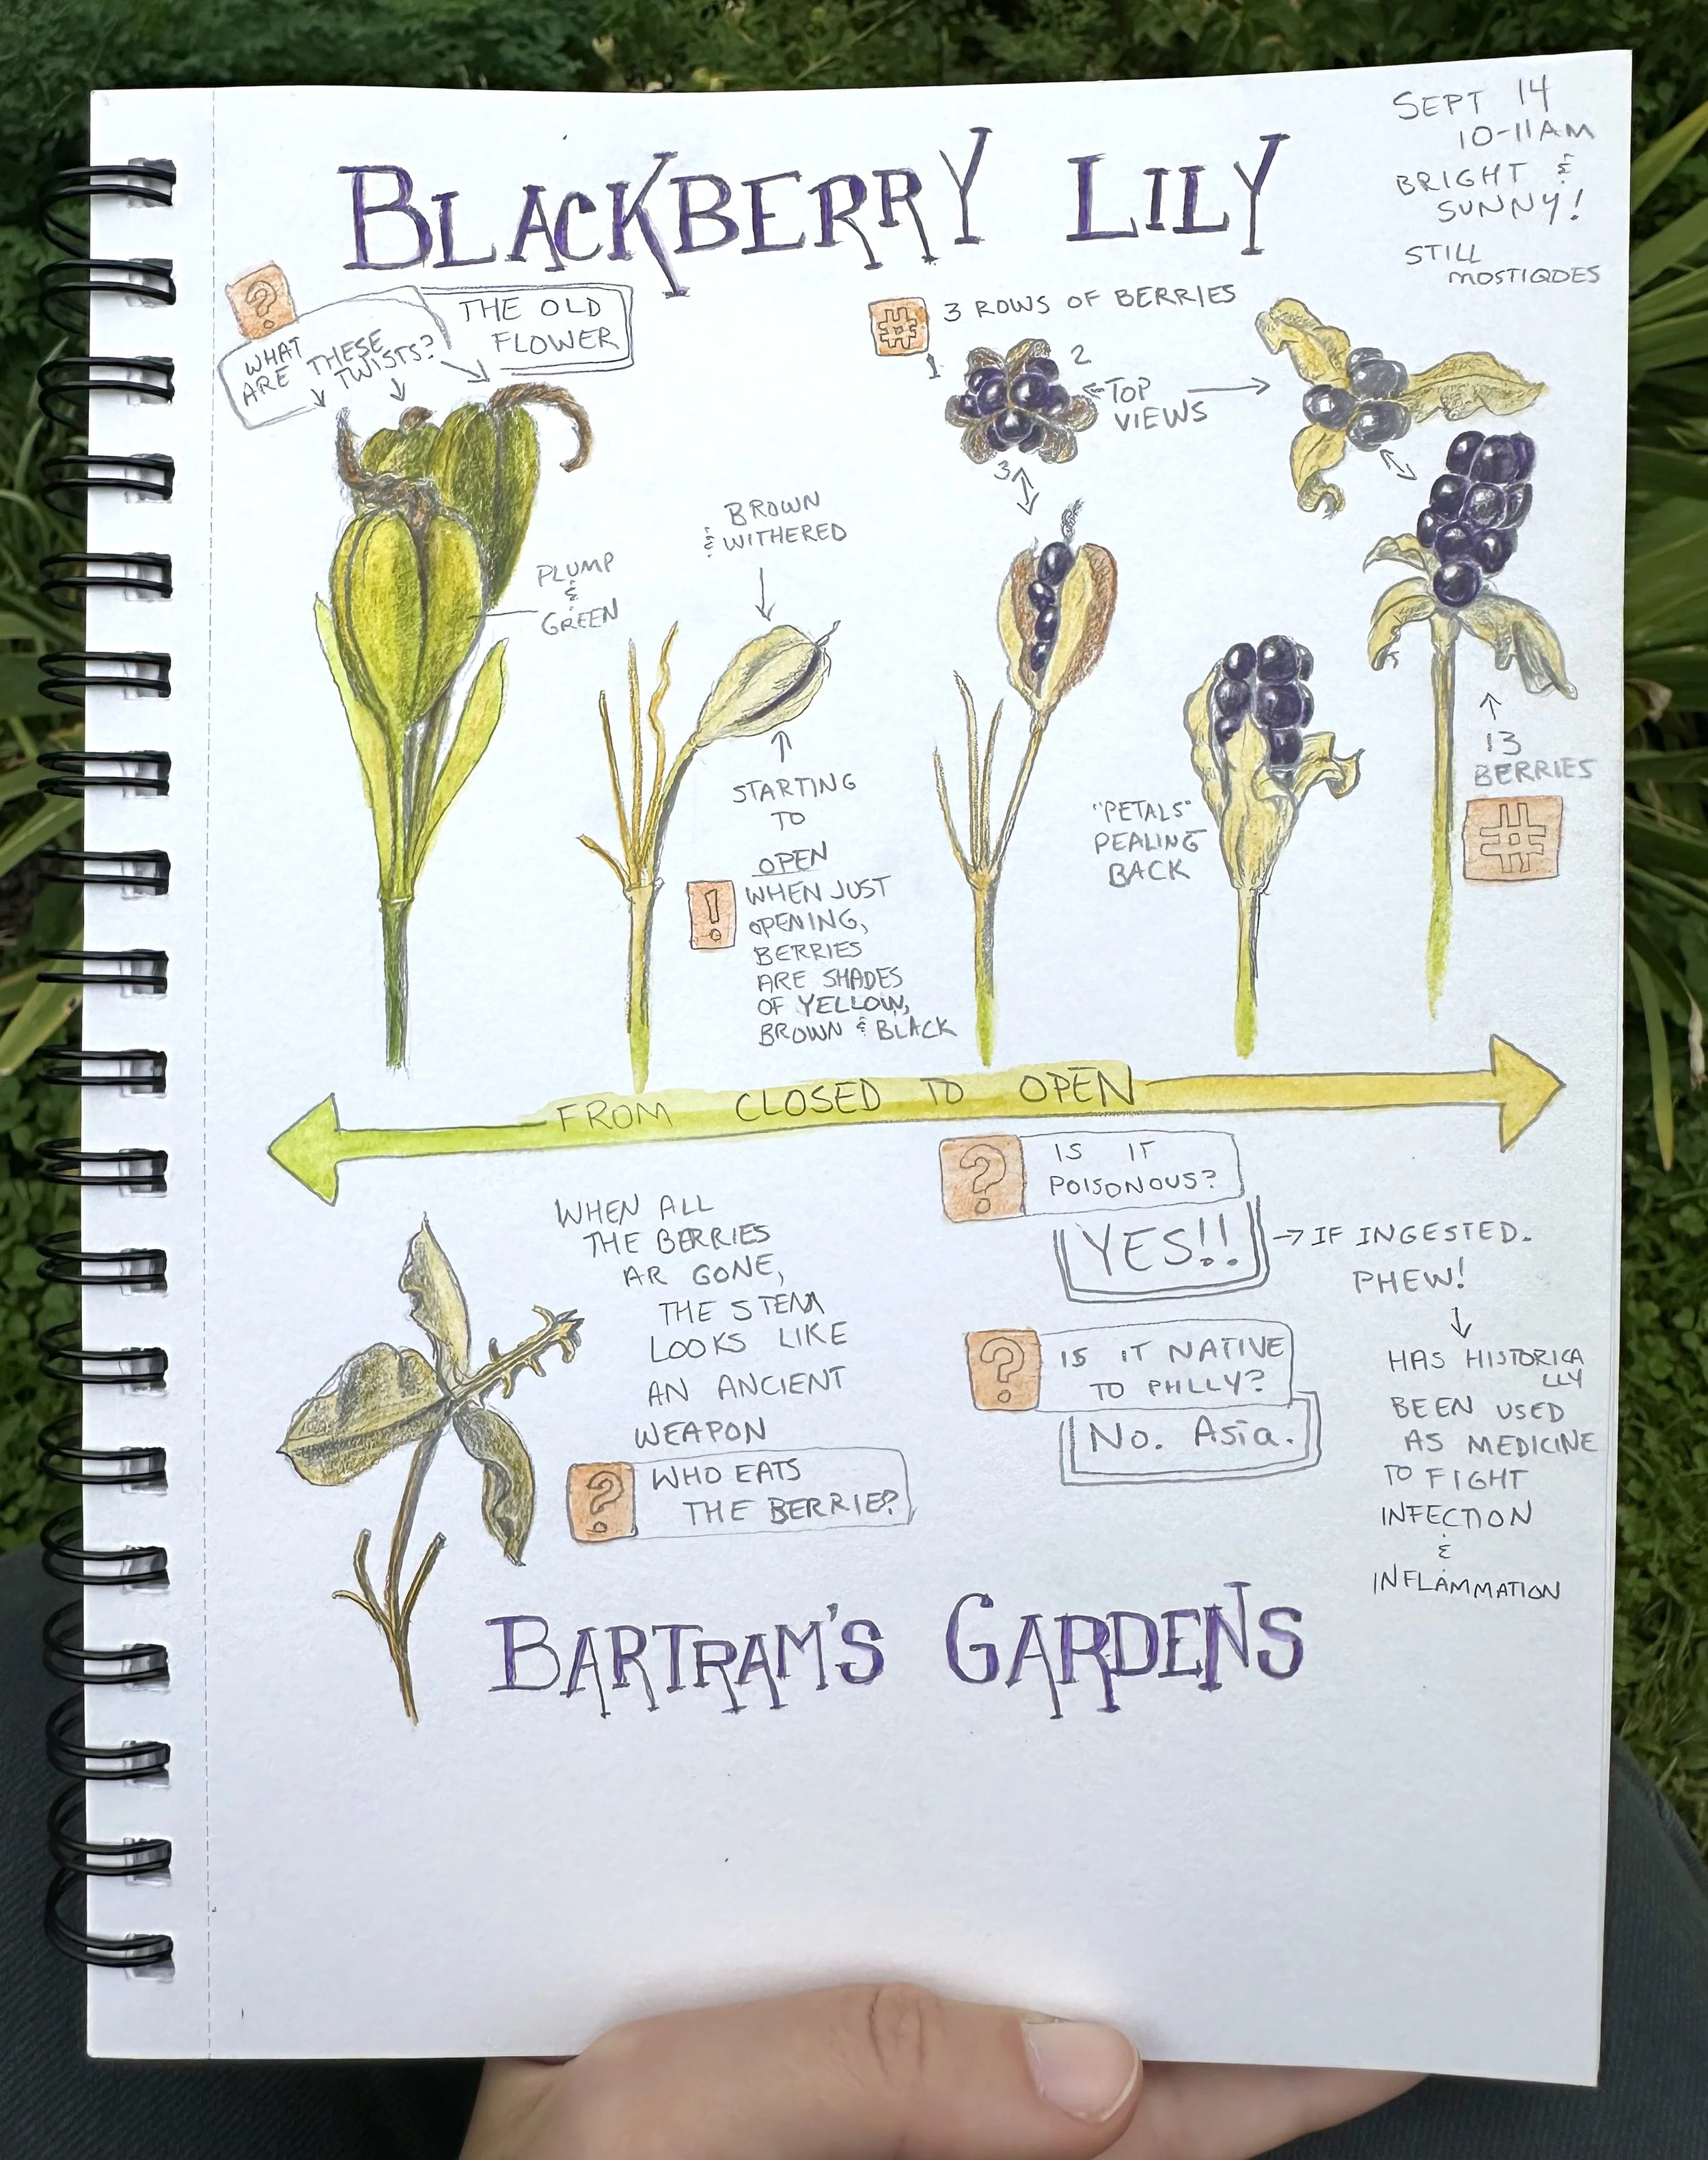 SEPT 14
10-11AM
BRIGHT &
SUNNY!
STILL
MOSTIQOES
BLACKBERRY LILY
?
WHAT
ARE THESE
TWISTS?
THE OLD
FLOWER
# 3 ROWS OF BERRIES
1
2
3
TOP
VIEWS
BROWN
& WITHERED
PLUMP
&
GREEN
STARTING
TO
OPEN
!
WHEN JUST
OPENING,
BERRIES
ARE SHADES
OF YELLOW,
BROWN & BLACK
"PETALS"
PEALING
BACK
13
BERRIES
#
FROM CLOSED TO OPEN
WHEN ALL
THE BERRIES
AR GONE,
THE STEM
LOOKS LIKE
AN ANCIENT
WEAPON
?
WHO EATS
THE BERRIE?
?
IS IT
POISONOUS?
YES!!
IF INGESTED.
PHEW!
HAS HISTORICA
LLY
BEEN USED
AS MEDICINE
TO FIGHT
INFECTION
&
INFLAMMATION
?
IS IT NATIVE
TO PHLLY?
No. Asia.
BARTRAM'S GARDENS